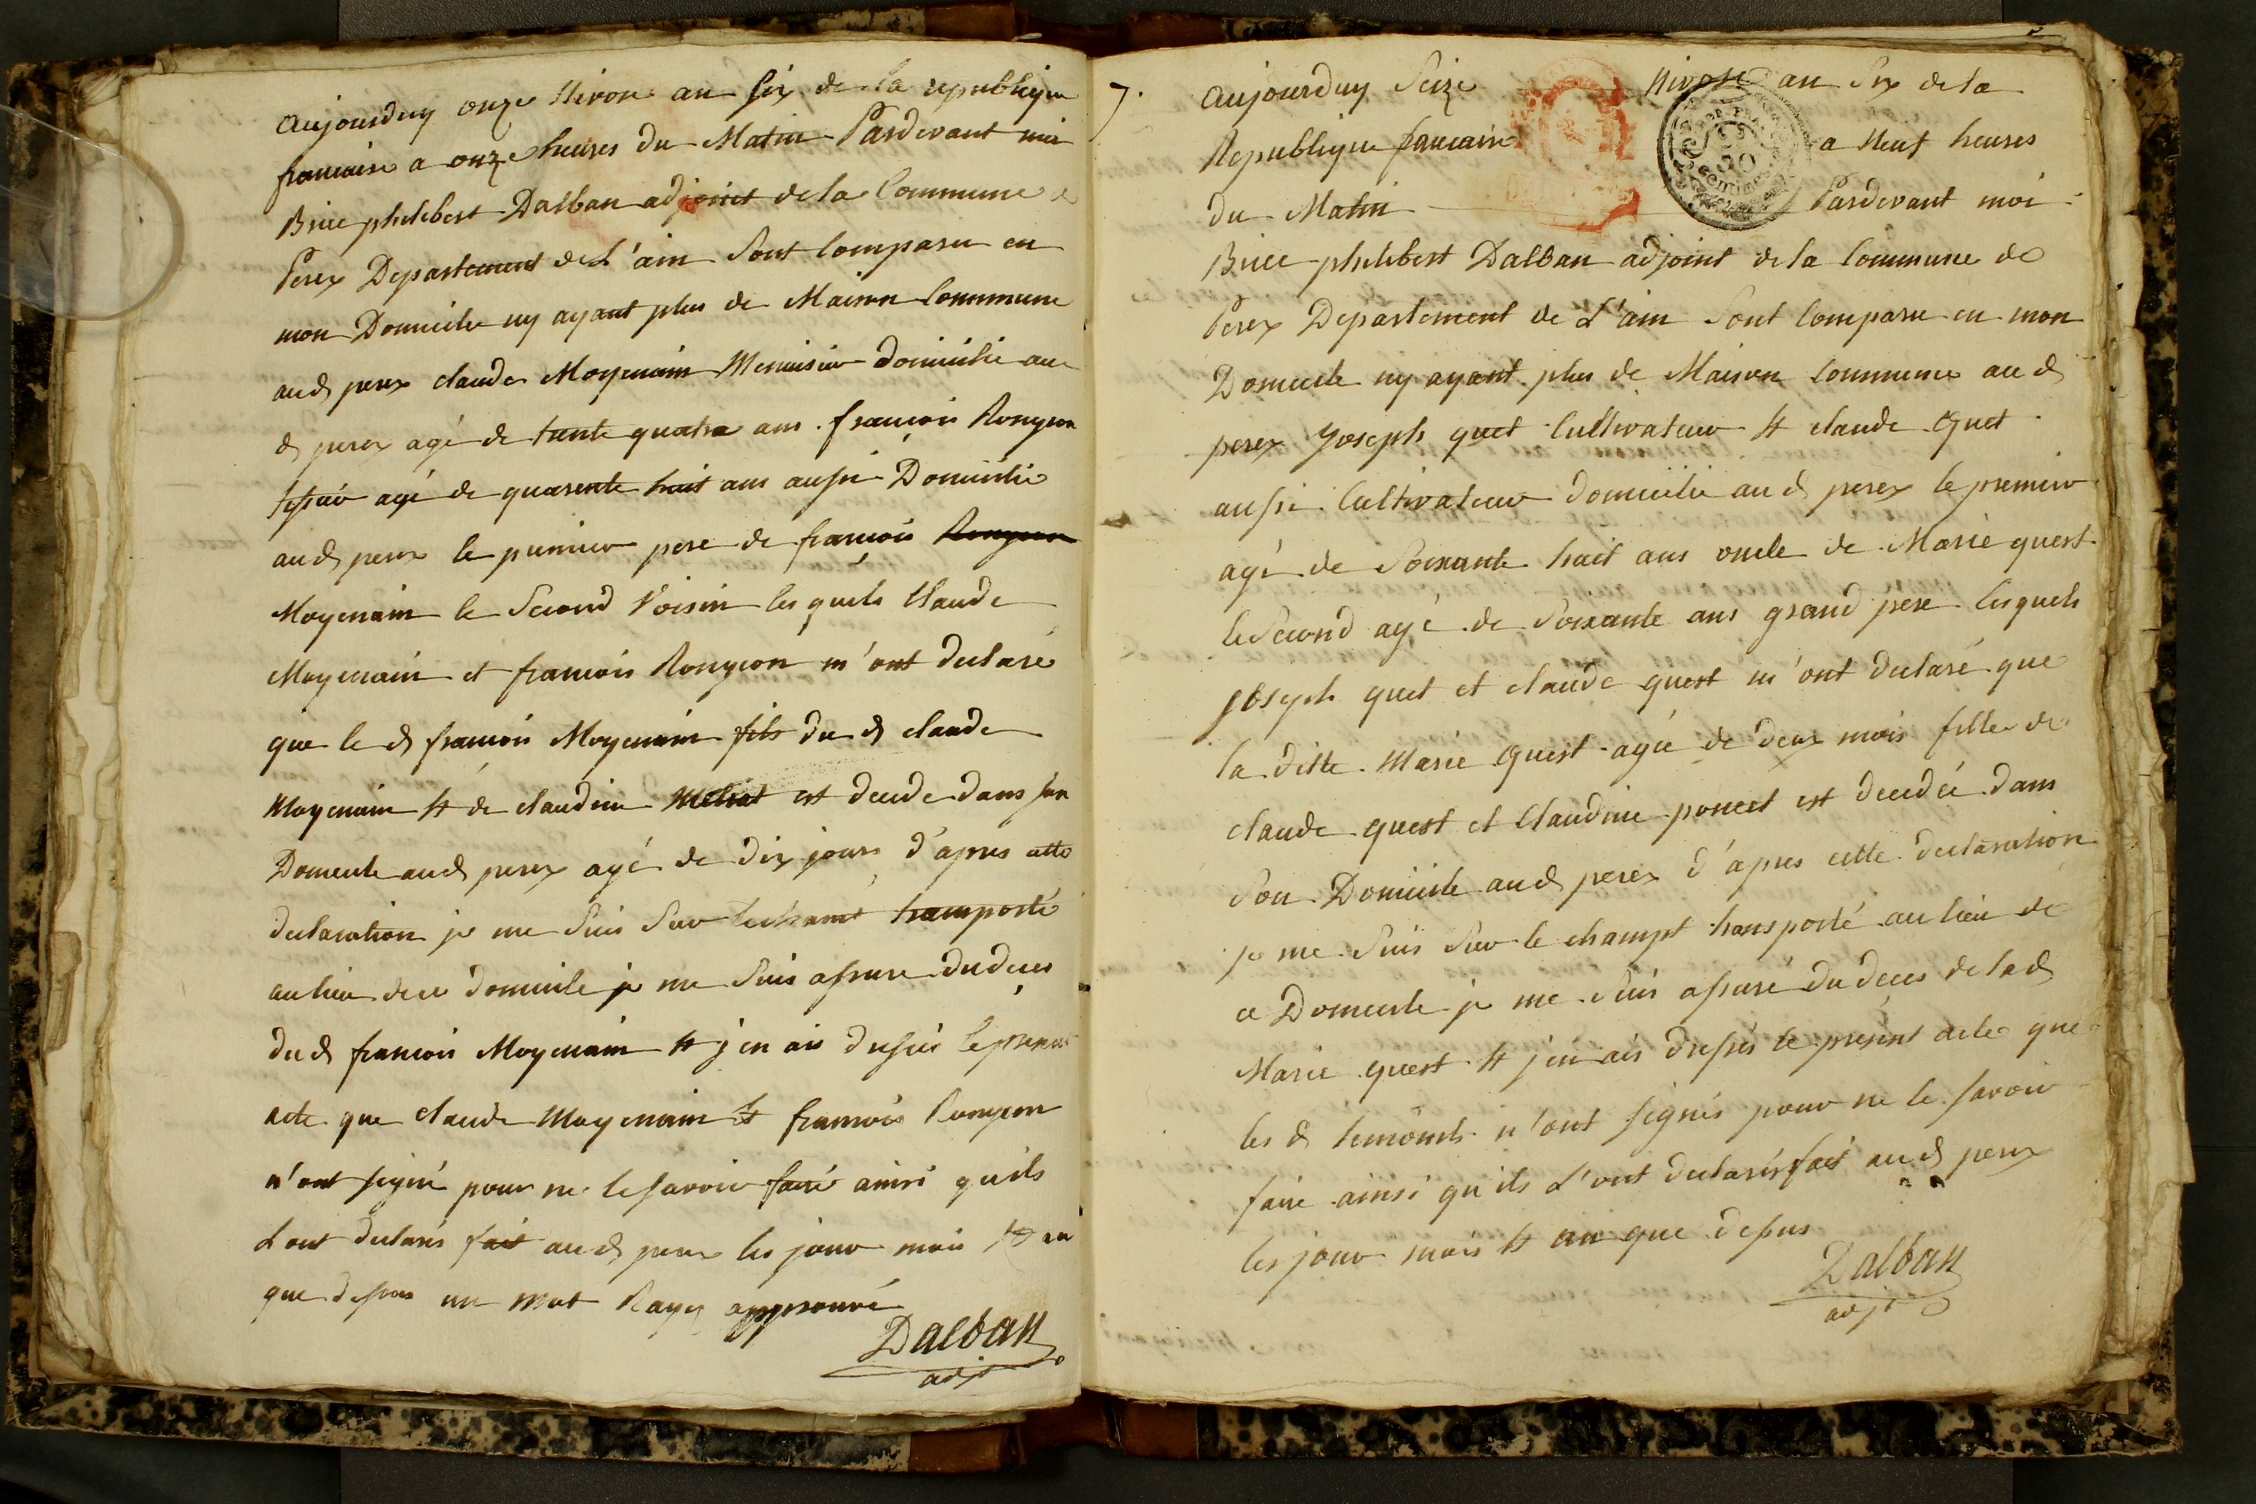 aujourduy onze Nivose an six de la republique
francaise a onze heures du Matin Pardevant moi
Brice philibert Dalban adjoint de la Commune de
Perex Departement de L'ain Sont Comparu en
mon Domicile ny ayant plus de Maison Commune
aud perex claude Moyenain Menuisier domicilie au
d perex agé de trante quatre ans. françois Ronjeon
tessier agé de quarente huit ans aussi Domicilie
aud perex le premier pere de françois Ronjeon
Moyenain le Second Voisin lesquels Claude
Moyenain et francois Ronjeon m'ont declaré
que le d francois Moyenain fils du d claude
Moyenain et de claudine Meliat est decede dans son
Domicile aud perex agé de dix jours d'apres cette
declaration je me Suis Sur lechamt transporté
au lieu de ce domicile je me Suis assure du deces
du d francois Moyenain et j'en ais dressés le present
acte que claude Moyenain et francois Ronjeon
n'ont signé pour ne le savoir faire ainsi quils
L'ont declarés fait aud perex les jour mois et an
que dessus un mot Rayez approuvé
Dalban
adjt
7.
aujourduy Seize Nivose an Six de la
Republique francaise a Neuf heures
du Matin Pardevant moi
50
centimes
Brice philibert Dalban adjoint de la Commune de
Perex Departement de L'ain Sont Comparu en mon
Domicile ny ayant plus de Maison Commune aud
perex Joseph quet Cultivateur et claude Quet
aussi Cultivateur domicilie aud perex le premier
agé de Soixante huit ans oncle de Marie quest
le Second agé de Soixante ans grand pere lesquels
Joseph quet et claude quest m'ont declaré que
la ditte Marie Quest agée de deux mois fille de
claude quest et Claudine poncet est decedée dans
Son Domicile aud perex d'apres cette declaration
je me Suis Sur le champt transporté au lieu de
ce Domicile je me Suis assuré du deces de la d
Marie quest et j'en ais dressés le present acte que
les d temoints n'ont signés pour ne le savoir
faire ainsi qu'ils L'ont declarés fait aud perex
les jour mois et an que dessus
Dalban
adjt